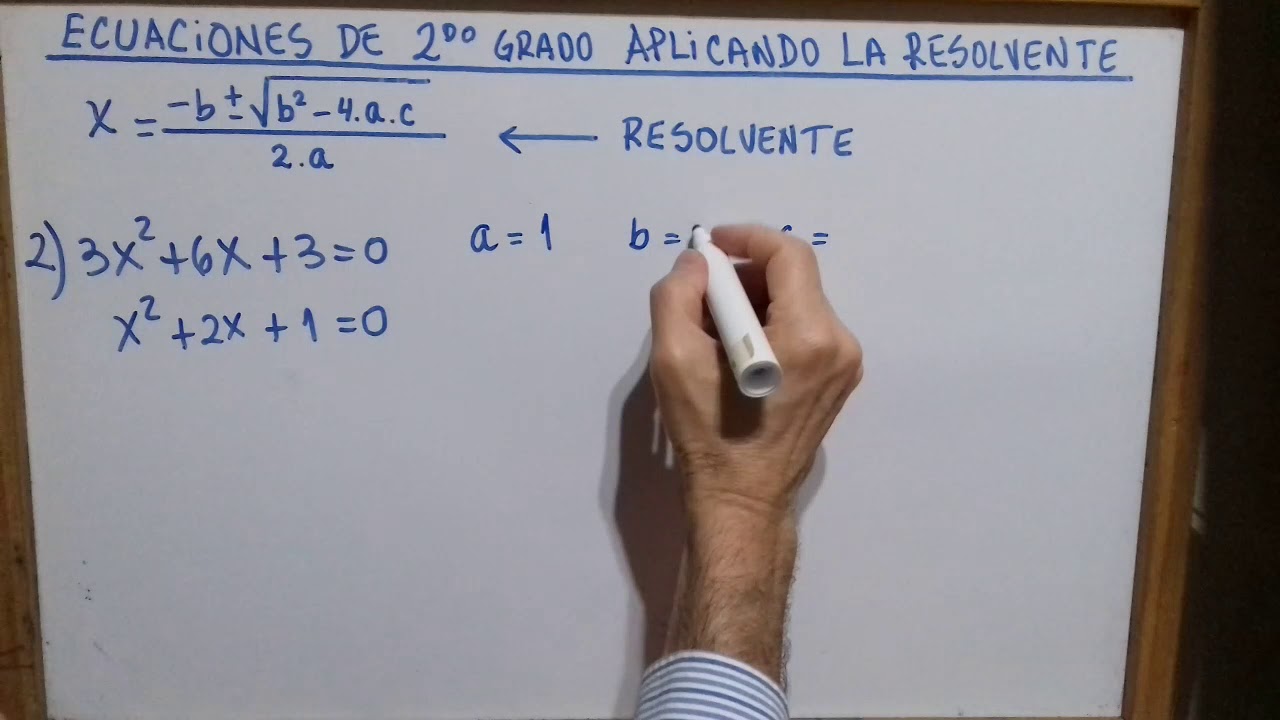 ECUACiONES DE 2DO GRADO APLiCANDO LA RESOLVENTE
x = -b ± √b² - 4.a.c / 2.a ← RESOLVENTE
2) 3x² + 6x + 3 = 0 a = 1 b = =
x² + 2x + 1 = 0